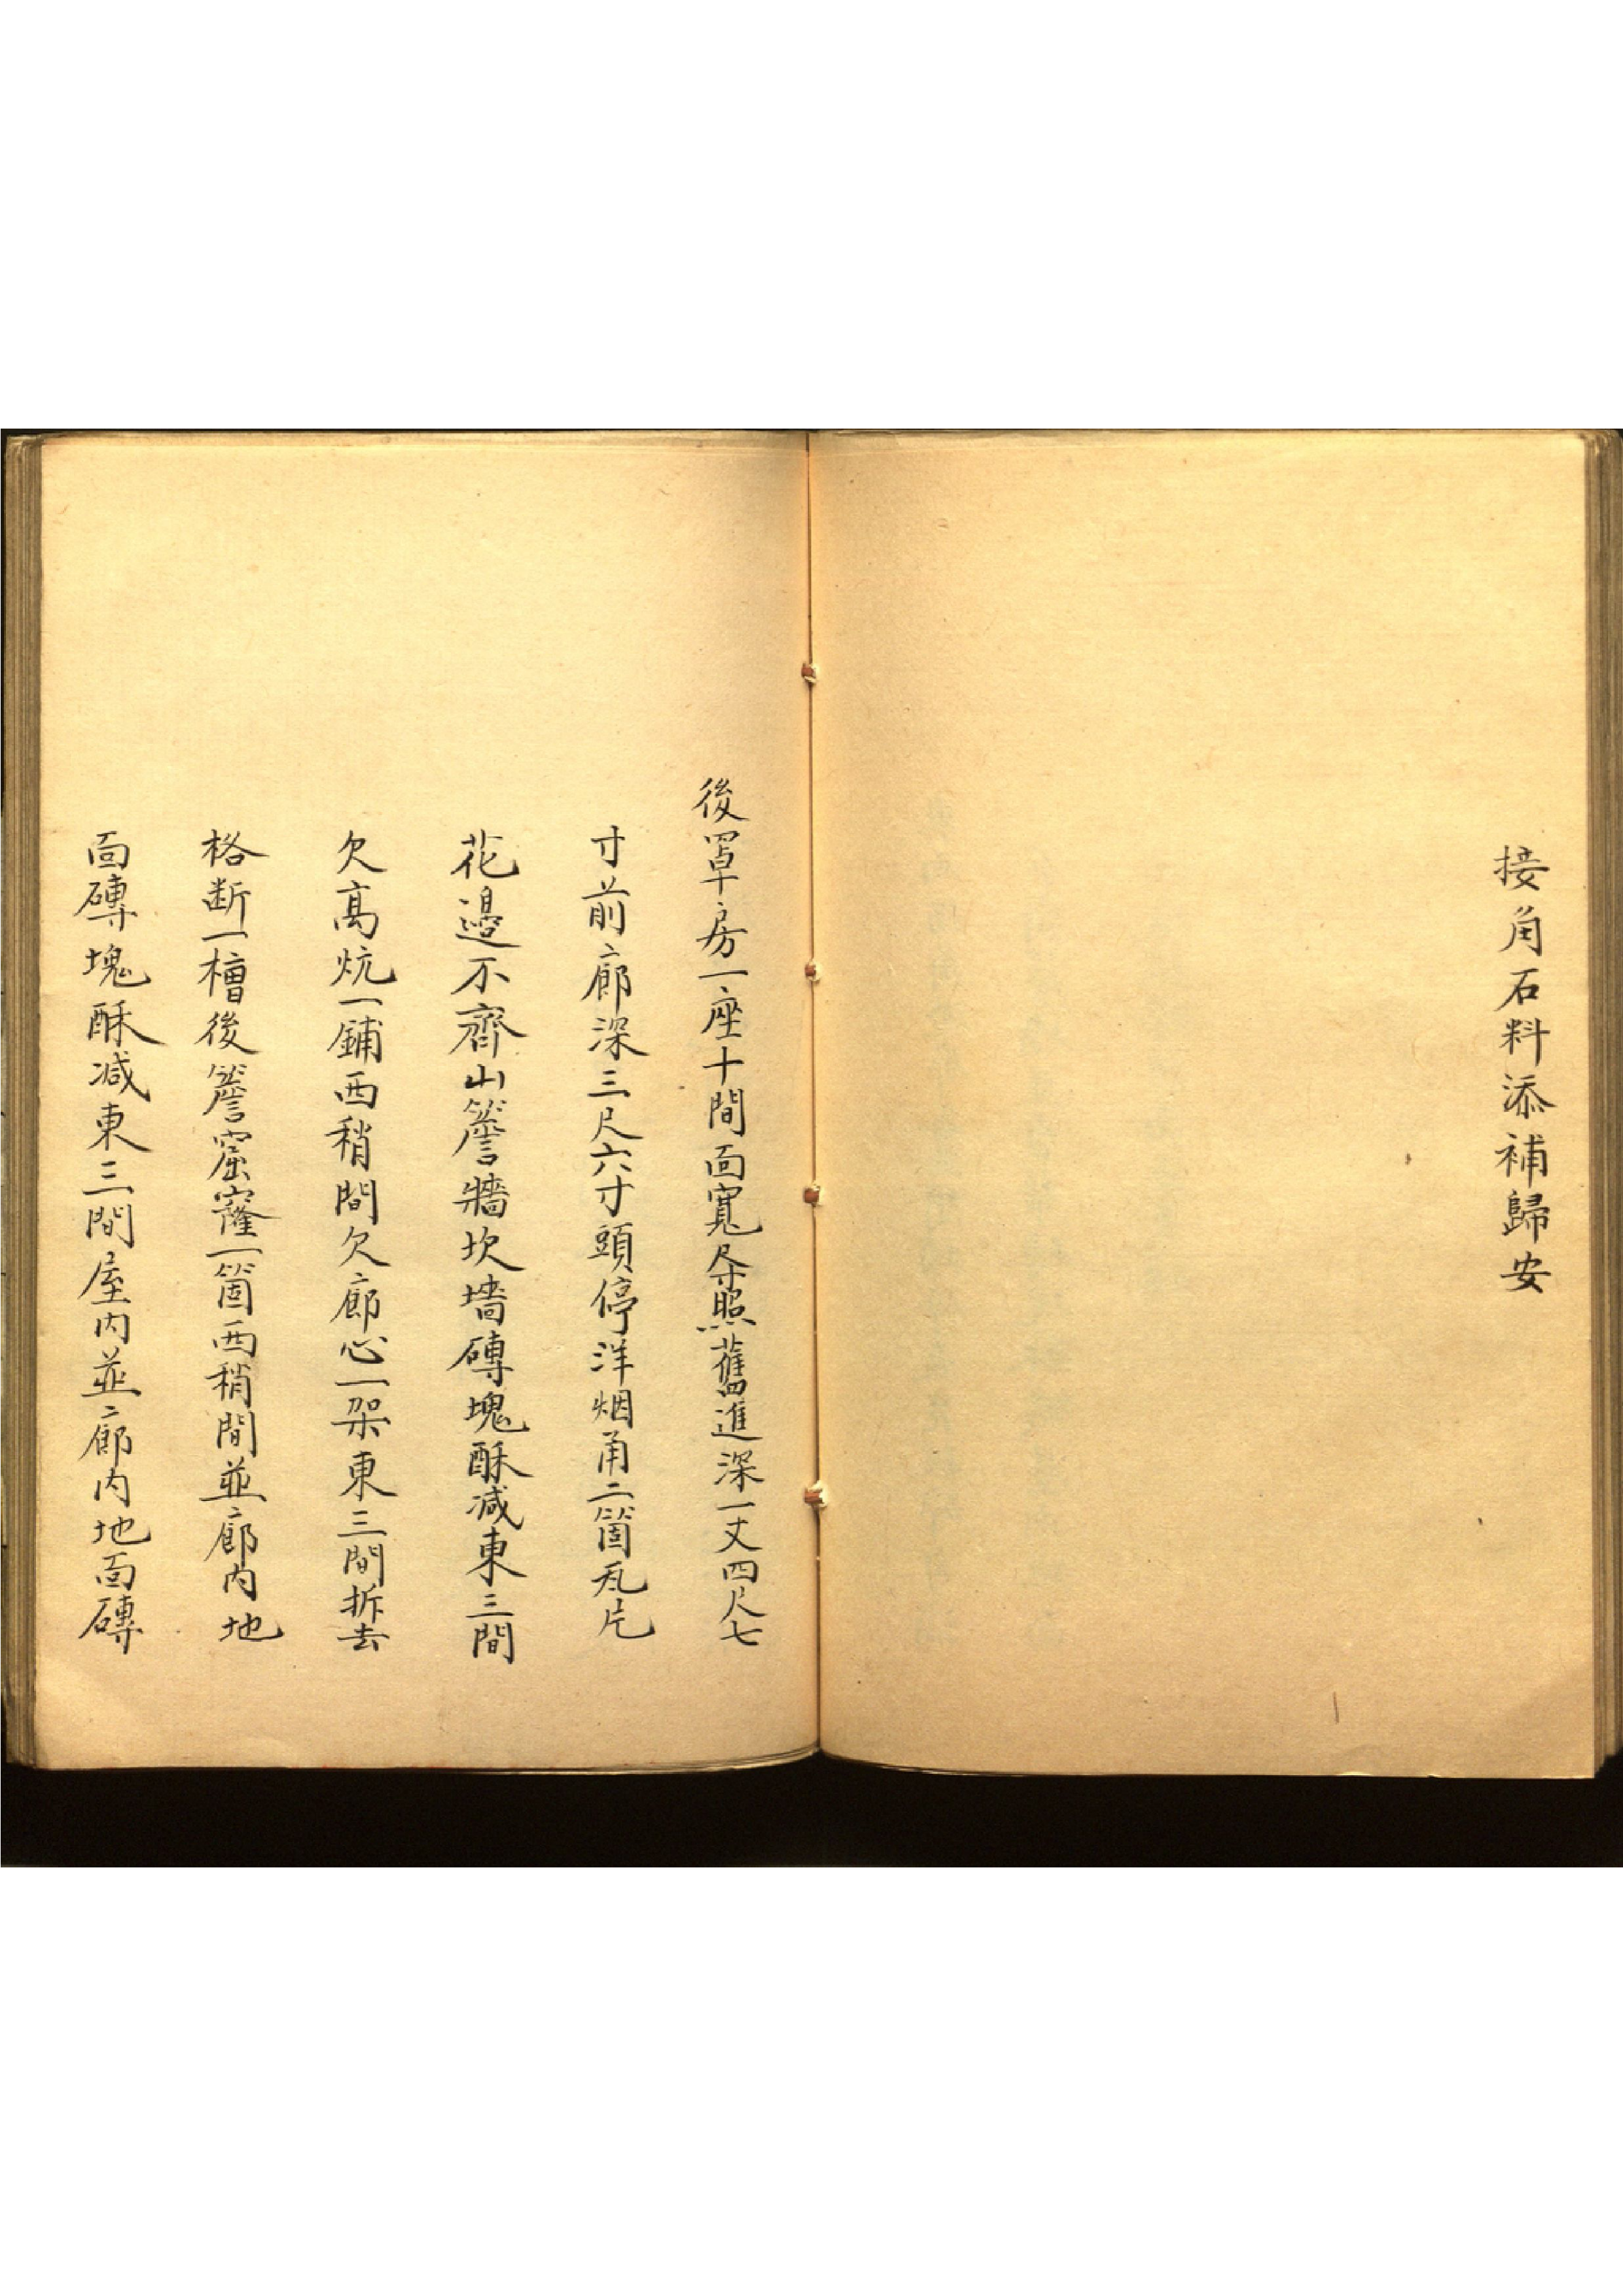 接角石料添補歸安
後罩房一座十間面寬尺寸照舊進深一丈四尺七
寸前廊深三尺六寸頭停洋烟甬二箇瓦片
花邊不齊山簷牆坎墻磚塊酥減東三間
欠高炕一鋪西稍間欠廊心一架東三間拆去
格断一槽後簷窟窿一箇西稍間並廊内地
面磚塊酥减東三間屋内並廊内地面磚